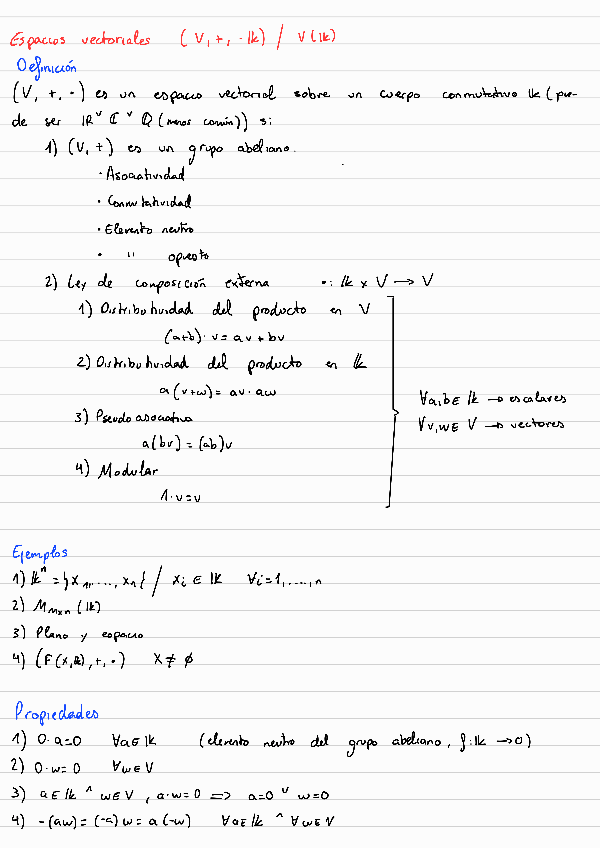 Espacios vectoriales (V, +, · lk) / V(lk)
Definición
(V, +, ·) es un espacio vectorial sobre un cuerpo conmutativo lk (pue-
de ser ℝ ˅ ℂ ˅ ℚ (menos común)) si:
1) (V, +) es un grupo abeliano.
· Asociatividad
· Conmutatividad
· Elemento neutro
· " opuesto
2) Ley de composición externa ·: lk x V → V
1) Distributividad del producto en V
(a+b)· v = av + bv
2) Distributividad del producto en lk
a (v+w) = av · aw
3) Pseudoasociativa
a(bv) = (ab)v
4) Modular
1·v=v
∀a,b∈ lk → escalares
∀v,w∈ V → vectores
Ejemplos
1) lkⁿ = {x₁, ..., xₙ} / xᵢ ∈ lk ∀i=1, ...., n
2) Mₘₓₙ (lk)
3) Plano y espacio
4) (F(X,lk), +, ·) X ≠ ∅
Propiedades
1) 0·a=0 ∀a∈ lk (elemento neutro del grupo abeliano, f: lk → 0)
2) 0·w= 0 ∀w∈V
3) a∈ lk ^ w∈V, a·w=0 => a=0 ˅ w=0
4) -(aw) = (-a) w = a (-w) ∀a∈ lk ^ ∀w∈V